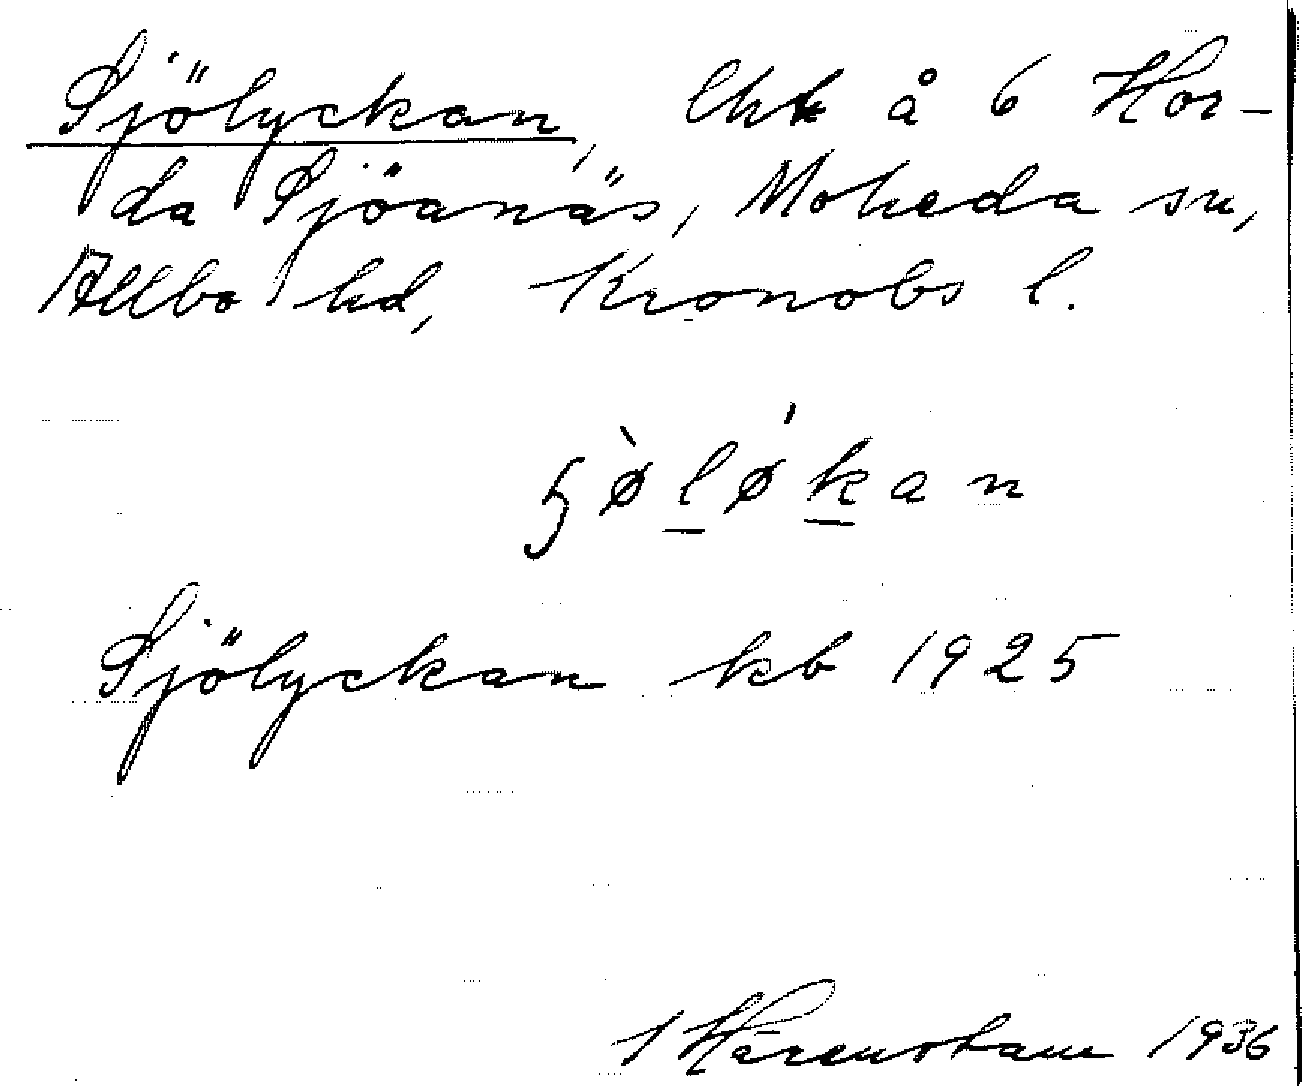 Sjölyckan, lht å 6 Hor-
da Sjöanäs, Moheda sn,
Allbo hd, Kronobs l.
ɧø̀lǿkan
Sjölyckan kb 1925
Härenstam 1936